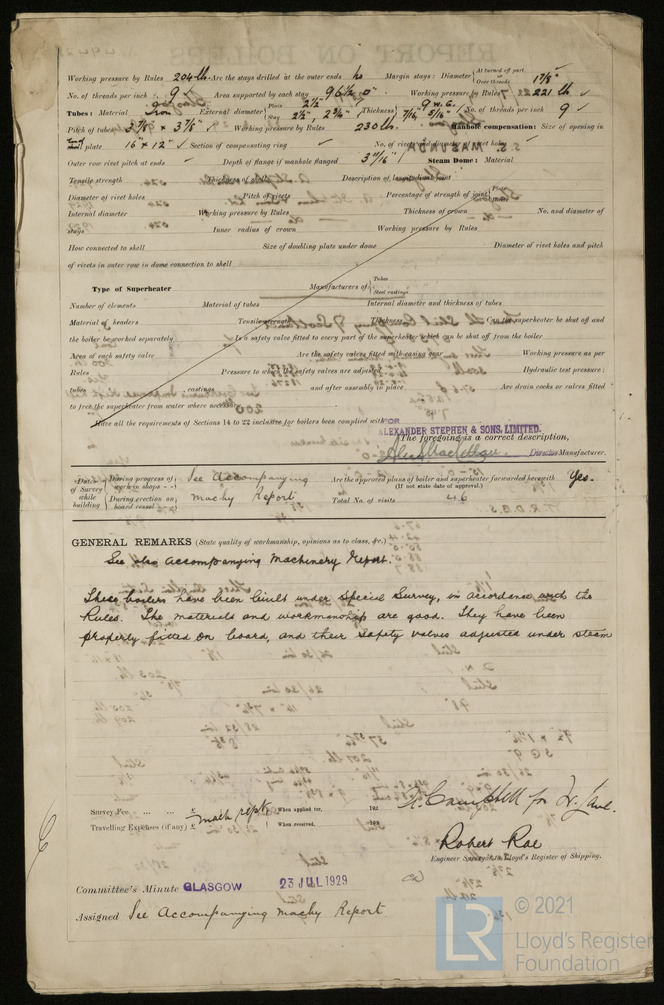 Working pressure by Rules 204 lb. Are the stays drilled at the outer ends No Margin stays: Diameter { At turned off part, or Over threads 1 7/8"
No. of threads per inch 9 Area supported by each stay 96 1/2 □" Working pressure by Rules 221 lb
Tubes: Material Iron External diameter { Plain 2 1/2" Stay 2 1/2", 2 3/4" Thickness { 9 W.G. 7/16, 5/16" No. of threads per inch 9
Pitch of tubes 3 7/8 x 3 7/8" Working pressure by Rules 230 lb. Manhole compensation: Size of opening in
shell plate 16" x 12" Section of compensating ring No. of rivets and diameter of rivet holes
Outer row rivet pitch at ends Depth of flange if manhole flanged 3 11/16" Steam Dome: Material
Tensile strength Thickness of shell Description of longitudinal joint
Diameter of rivet holes Pitch of rivets Percentage of strength of joint { Plate Rivets
Internal diameter Working pressure by Rules Thickness of crown No. and diameter of
stays Inner radius of crown Working pressure by Rules
How connected to shell Size of doubling plate under dome Diameter of rivet holes and pitch
of rivets in outer row in dome connection to shell
Type of Superheater Manufacturers of { Tubes Steel castings
Number of elements Material of tubes Internal diameter and thickness of tubes
Material of headers Tensile strength Thickness Can the superheater be shut off and
the boiler be worked separately Is a safety valve fitted to every part of the superheater which can be shut off from the boiler
Area of each safety valve Are the safety valves fitted with easing gear Working pressure as per
Rules Pressure to which the safety valves are adjusted Hydraulic test pressure:
tubes castings and after assembly in place Are drain cocks or valves fitted
to free the superheater from water where necessary
Have all the requirements of Sections 14 to 22 inclusive for boilers been complied with
FOR
ALEXANDER STEPHEN & SONS, LIMITED.
The foregoing is a correct description,
Director Manufacturer.
Dates of Survey while building { During progress of work in shops - - } See Accompanying Are the approved plans of boiler and superheater forwarded herewith Yes.
(If not state date of approval.)
{ During erection on board vessel } Machy Report Total No. of visits 46
GENERAL REMARKS (State quality of workmanship, opinions as to class, &c.)
See also accompanying Machinery Report.
These boilers have been built under Special Survey, in accordance with the
Rules. The materials and workmanship are good. They have been
properly fitted on board, and their safety valves adjusted under steam
Survey Fee ... ... £ Mach rept. When applied for, 192
Travelling Expenses (if any) £ When received, 192
R. Campbell for
Robert Rae
Engineer Surveyor to Lloyd's Register of Shipping.
Committee's Minute GLASGOW 23 JUL 1929
Assigned See Accompanying Machy Report
LR
© 2021
Lloyd's Register
Foundation